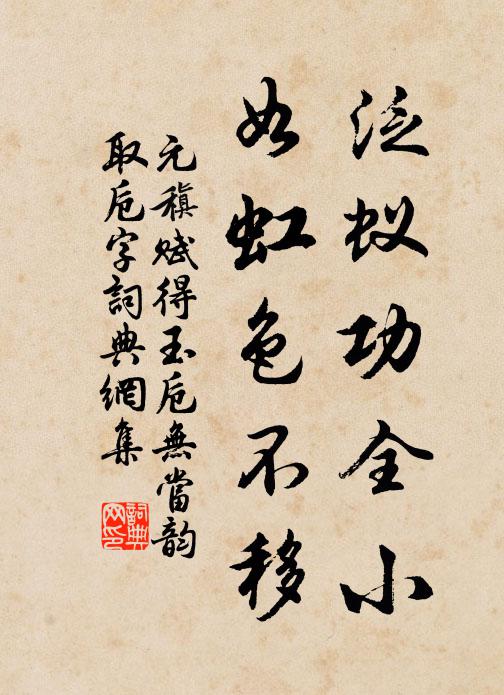 泛蚁功全小
如虹色不移
元稹赋得玉卮無當韵
取卮字詞典網集
詞典网印